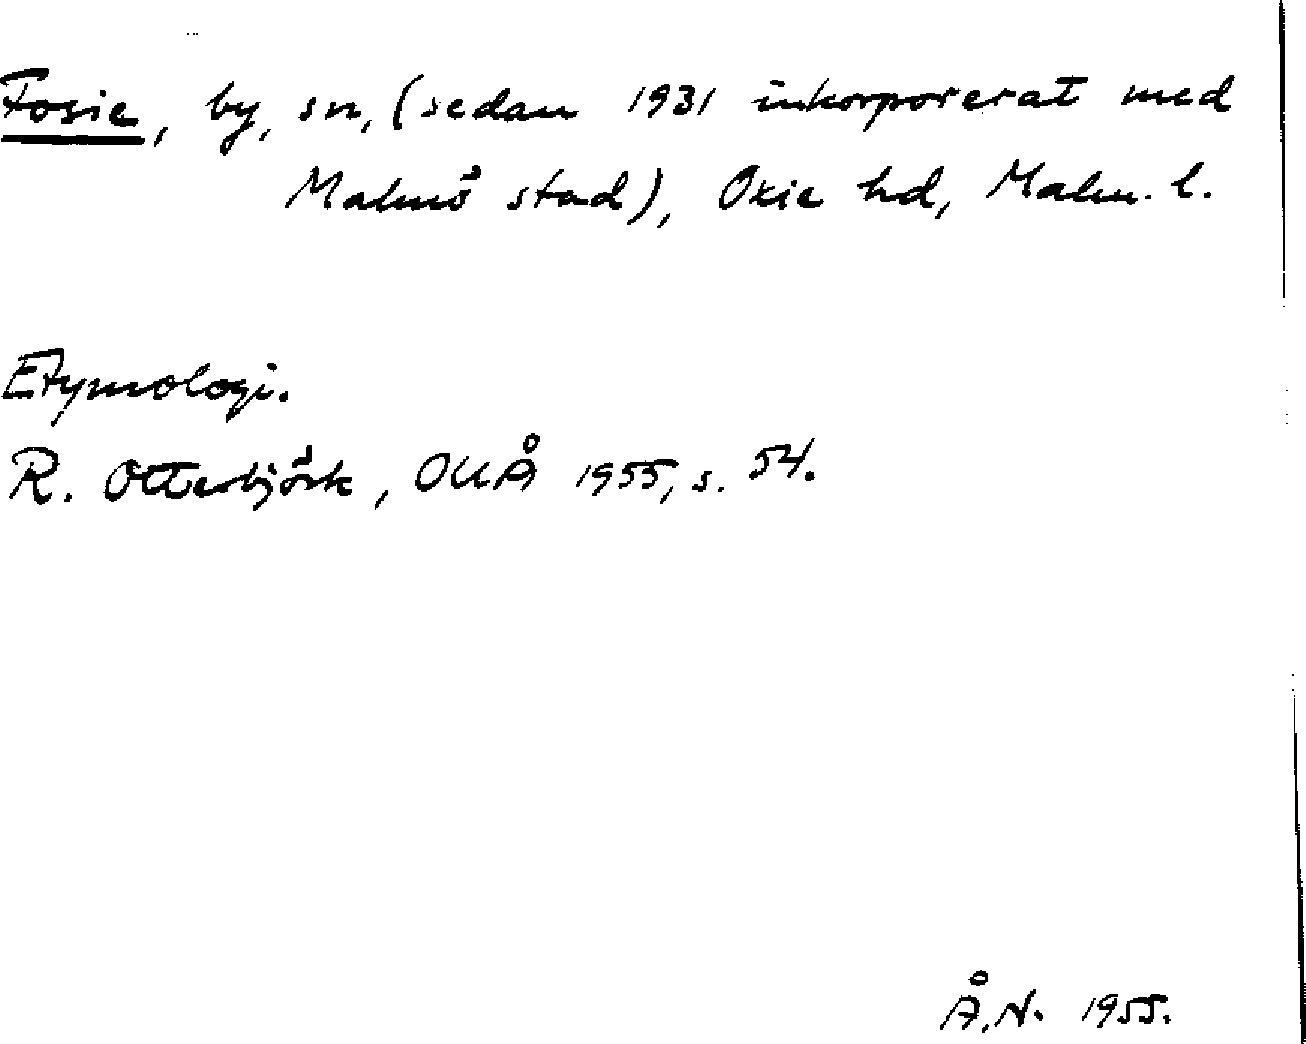 Fosie, by, sn, (sedan 1931 inkorporerat med
Malmö stad), Oxie hd, Malm. l.
Etymologi.
R. Otterbjörk, OUÅ 1955, s. 54.
Å.N. 1955.